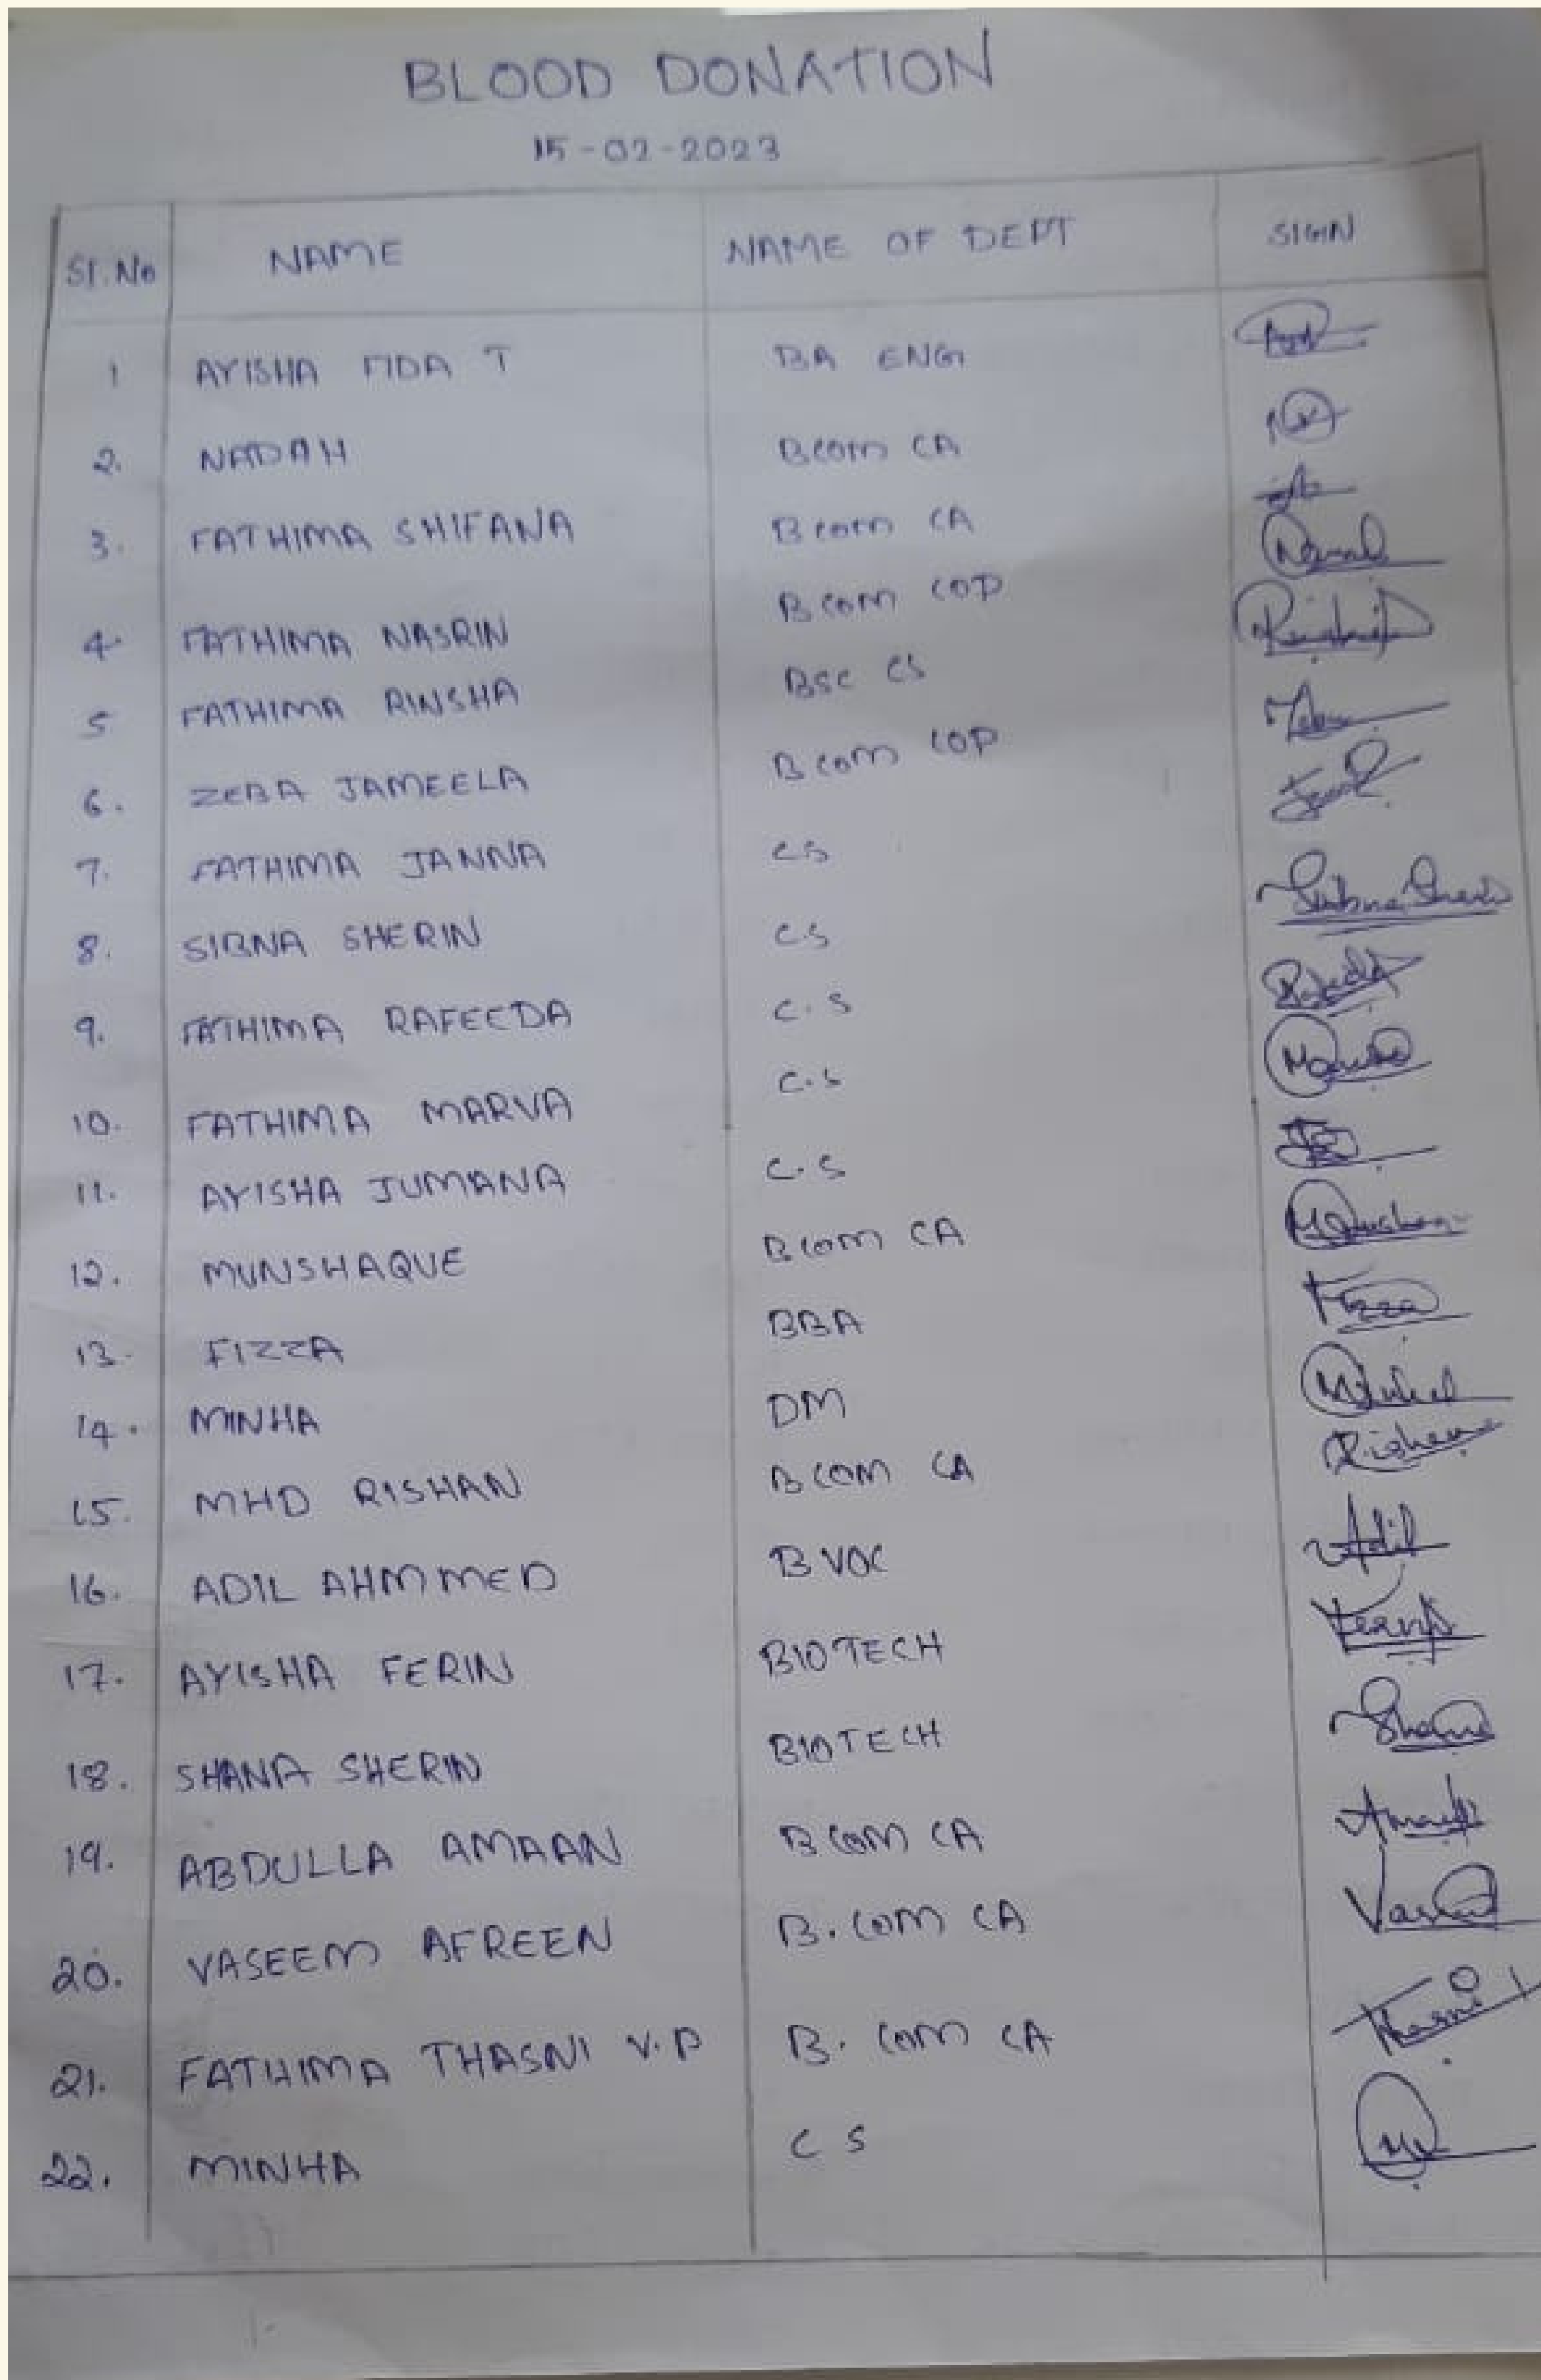 BLOOD DONATION
15-02-2023
Sl.No NAME NAME OF DEPT SIGIN
1 AYISHA FIDA T BA ENG
2. NADAH BCOM CA
3. FATHIMA SHIFANA BCOM CA
4. FATHIMA NASRIN BCOM COP
5 FATHIMA RINSHA BSC CS
6. ZEBA JAMEELA BCOM COP
7. FATHIMA JANNA CS
8. SIBNA SHERIN C.S Sibna Sherin
9. FATHIMA RAFEEDA C.S
10. FATHIMA MARVA C.S
11. AYISHA JUMANA C.S
12. MUNSHAQUE BCOM CA
13. FIZZA BBA Fizza
14. MINHA DM
15. MHD RISHAN BCOM CA Rishan
16. ADIL AHMMED B VOC Adil
17. AYISHA FERIN BIOTECH
18. SHANA SHERIN BIOTECH Shana
19. ABDULLA AMAAN BCOM CA
20. VASEEM AFREEN B.COM CA
21. FATHIMA THASNI V.P B.COM CA Thasni
22. MINHA CS